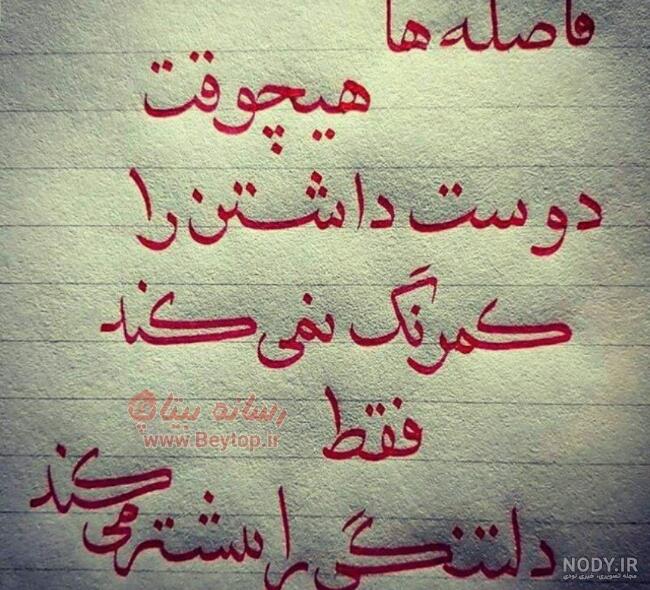 فاصله ها
هیچوقت
دوست داشتن را
کمرنگ نمی کند
فقط
دلتنگی را بیشتر می کند
رسانه بیتاپ
www.Beytop.ir
NODY.IR
مجله تصویری، خبری نودی